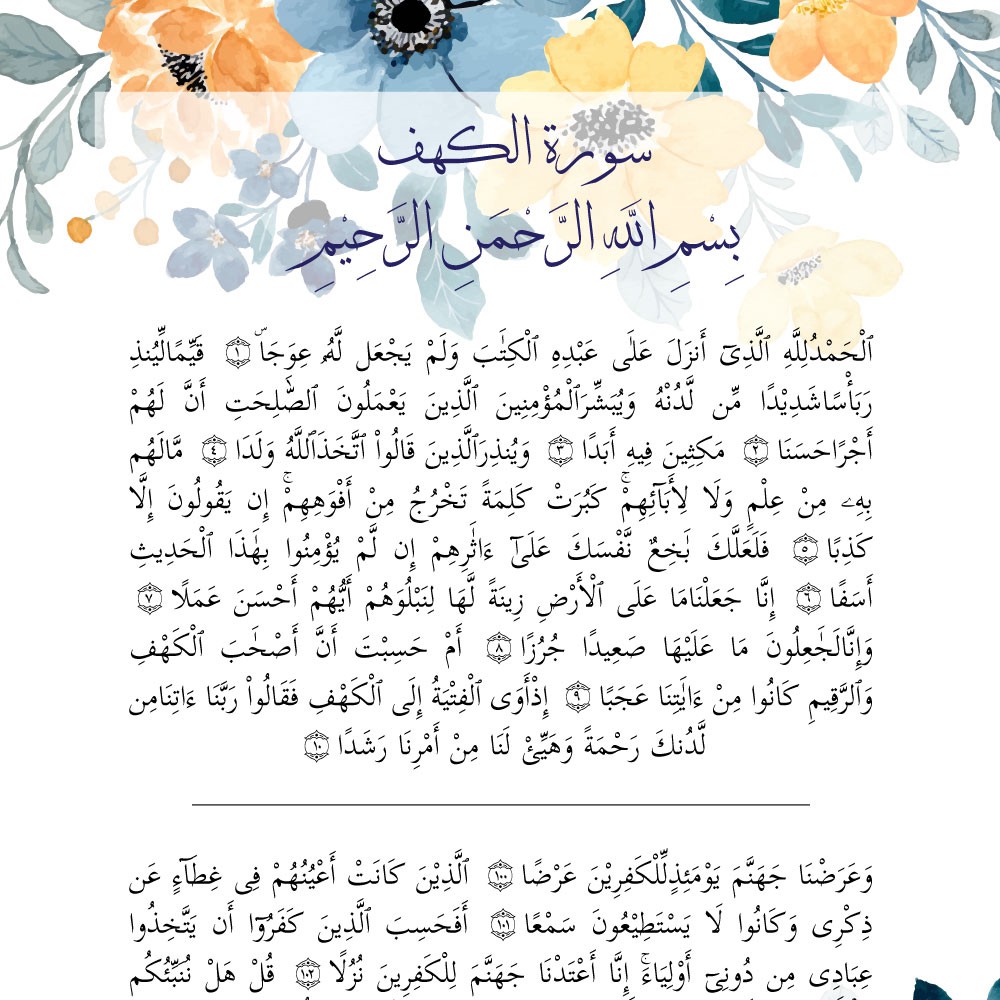 سورة الكهف
بِسْمِ اللَّهِ الرَّحْمَنِ الرَّحِيْمِ
ٱلْحَمْدُلِلَّهِ ٱلَّذِىٓ أَنزَلَ عَلَى عَبْدِهِ ٱلْكِتَٰبَ وَلَمْ يَجْعَل لَّهُۥ عِوَجَاۜ ١ قَيِّمًالِّيُنذِ
رَبَأْسًاشَدِيْدًا مِّن لَّدُنْهُ وَيُبَشِّرَٱلْمُؤْمِنِينَ ٱلَّذِينَ يَعْمَلُونَ ٱلصَّٰلِحَتِ أَنَّ لَهُمْ
أَجْرًاحَسَنَا ٢ مَكِثِينَ فِيهِ أَبَدًا ٣ وَيُنذِرَٱلَّذِينَ قَالُواْ ٱتَّخَذَٱللَّهُ وَلَدَا ٤ مَّالَهُم
بِهِۦ مِنْ عِلْمٍ وَلَا لِأَبَائِهِمْۚ كَبُرَتْ كَلِمَةً تَخْرُجُ مِنْ أَفْوَهِهِمْۚ إِن يَقُولُونَ إِلَّا
كَذِبًا ٥ فَلَعَلَّكَ بَٰخِعٌ نَّفْسَكَ عَلَىٓ ءَاثَٰرِهِمْ إِن لَّمْ يُؤْمِنُوا بِهَٰذَا ٱلْحَدِيثِ
أَسَفًا ٦ إِنَّا جَعَلْنَامَا عَلَى ٱلْأَرْضِ زِينَةً لَّهَا لِنَبْلُوَهُمْ أَيُّهُمْ أَحْسَنَ عَمَلًا ٧
وَإِنَّالَجَٰعِلُونَ مَا عَلَيْهَا صَعِيدًا جُرُزًا ٨ أَمْ حَسِبْتَ أَنَّ أَصْحَٰبَ ٱلْكَهْفِ
وَٱلرَّقِيمِ كَانُوا مِنْ ءَايَٰتِنَا عَجَبًا ٩ إِذْأَوَى ٱلْفِتْيَةُ إِلَى ٱلْكَهْفِ فَقَالُواْ رَبَّنَا ءَاتِنَامِن
لَّدُنكَ رَحْمَةً وَهَيِّئْ لَنَا مِنْ أَمْرِنَا رَشَدًا ١٠
وَعَرَضْنَا جَهَنَّمَ يَوْمَئِذٍلِّلْكَفِرِيْنَ عَرْضًا ١٠٠ ٱلَّذِيْنَ كَانَتْ أَعْيُنُهُمْ فِى غِطَآءٍ عَن
ذِكْرِى وَكَانُوا لَا يَسْتَطِيْعُونَ سَمْعًا ١٠١ أَفَحَسِبَ ٱلَّذِينَ كَفَرُوٓا أَن يَتَّخِذُوا
عِبَادِى مِن دُونِىٓ أَوْلِيَاءَۚ إِنَّا أَعْتَدْنَا جَهَنَّمَ لِلْكَفِرِينَ نُزُلًا ١٠٢ قُلْ هَلْ نُنَبِّئُكُم